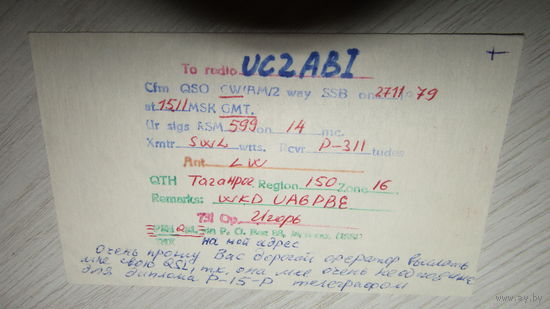 To radio UC2ABI
Cfm QSO CW/AM/2 way SSB on 2711 79
at 1511 MSK GMT.
Ur sigs RSM 599 on 14 mc.
Xmtr SWL wtts. Rcvr P-311 tudes
Ant LW
QTH Таганрог Region 150 Zone 16
Remarks: WKD UA6PBE
73! Op. Игорь
P. O. Box 88, USSR
на мой адрес
Очень прошу Вас дорогой оператор выслать
мне свою QSL, т.к. она мне очень необходима
для диплома Р-15-Р телеграфом
www.ay.by